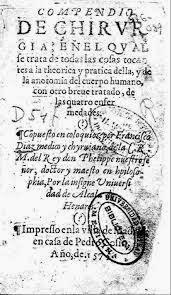 COMPENDIO
DE CHIRVR
GIA: EN EL QVAL
se trata de todas las cosas tocan
tes a la theorica y pratica della, y de
la anotomia del cuerpo humano,
con otro breue tratado, de
las quatro enfer
medades.
D 54
Cõpuesto en coloquios, por Francisco
Diaz medico y chyrujano de la C. R.
M. del Rey don Phelippe nuestro señor,
doctor y maestro en philosophia,
Por la insigne Vniuersi
dad de Alcala
Henares.
Impresso en la villa de Madrid
en casa de Pedro Cosio.
Año, de 157